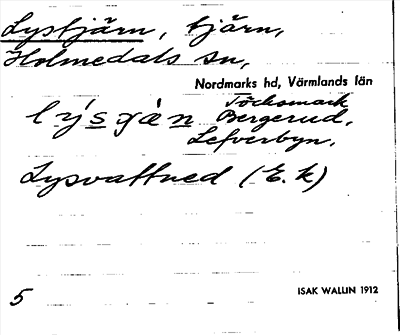 Lystjärn, tjärn,
Holmedals sn,
Nordmarks hd, Värmlands län
Töcksmark
lýsɣàn Bergerud,
Lefverbyn.
Lysvattned (E.k)
5 ISAK WALLIN 1912